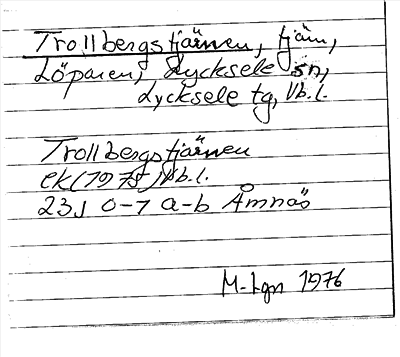 Trollbergstjärnen, tjärn,
Löparen, Lycksele sn,
Lycksele tg, Vb.l.
Trollbergstjärnen
ek (1975) Vb.l.
23J 0-7 a-b Åmnäs
M-Lgn 1976